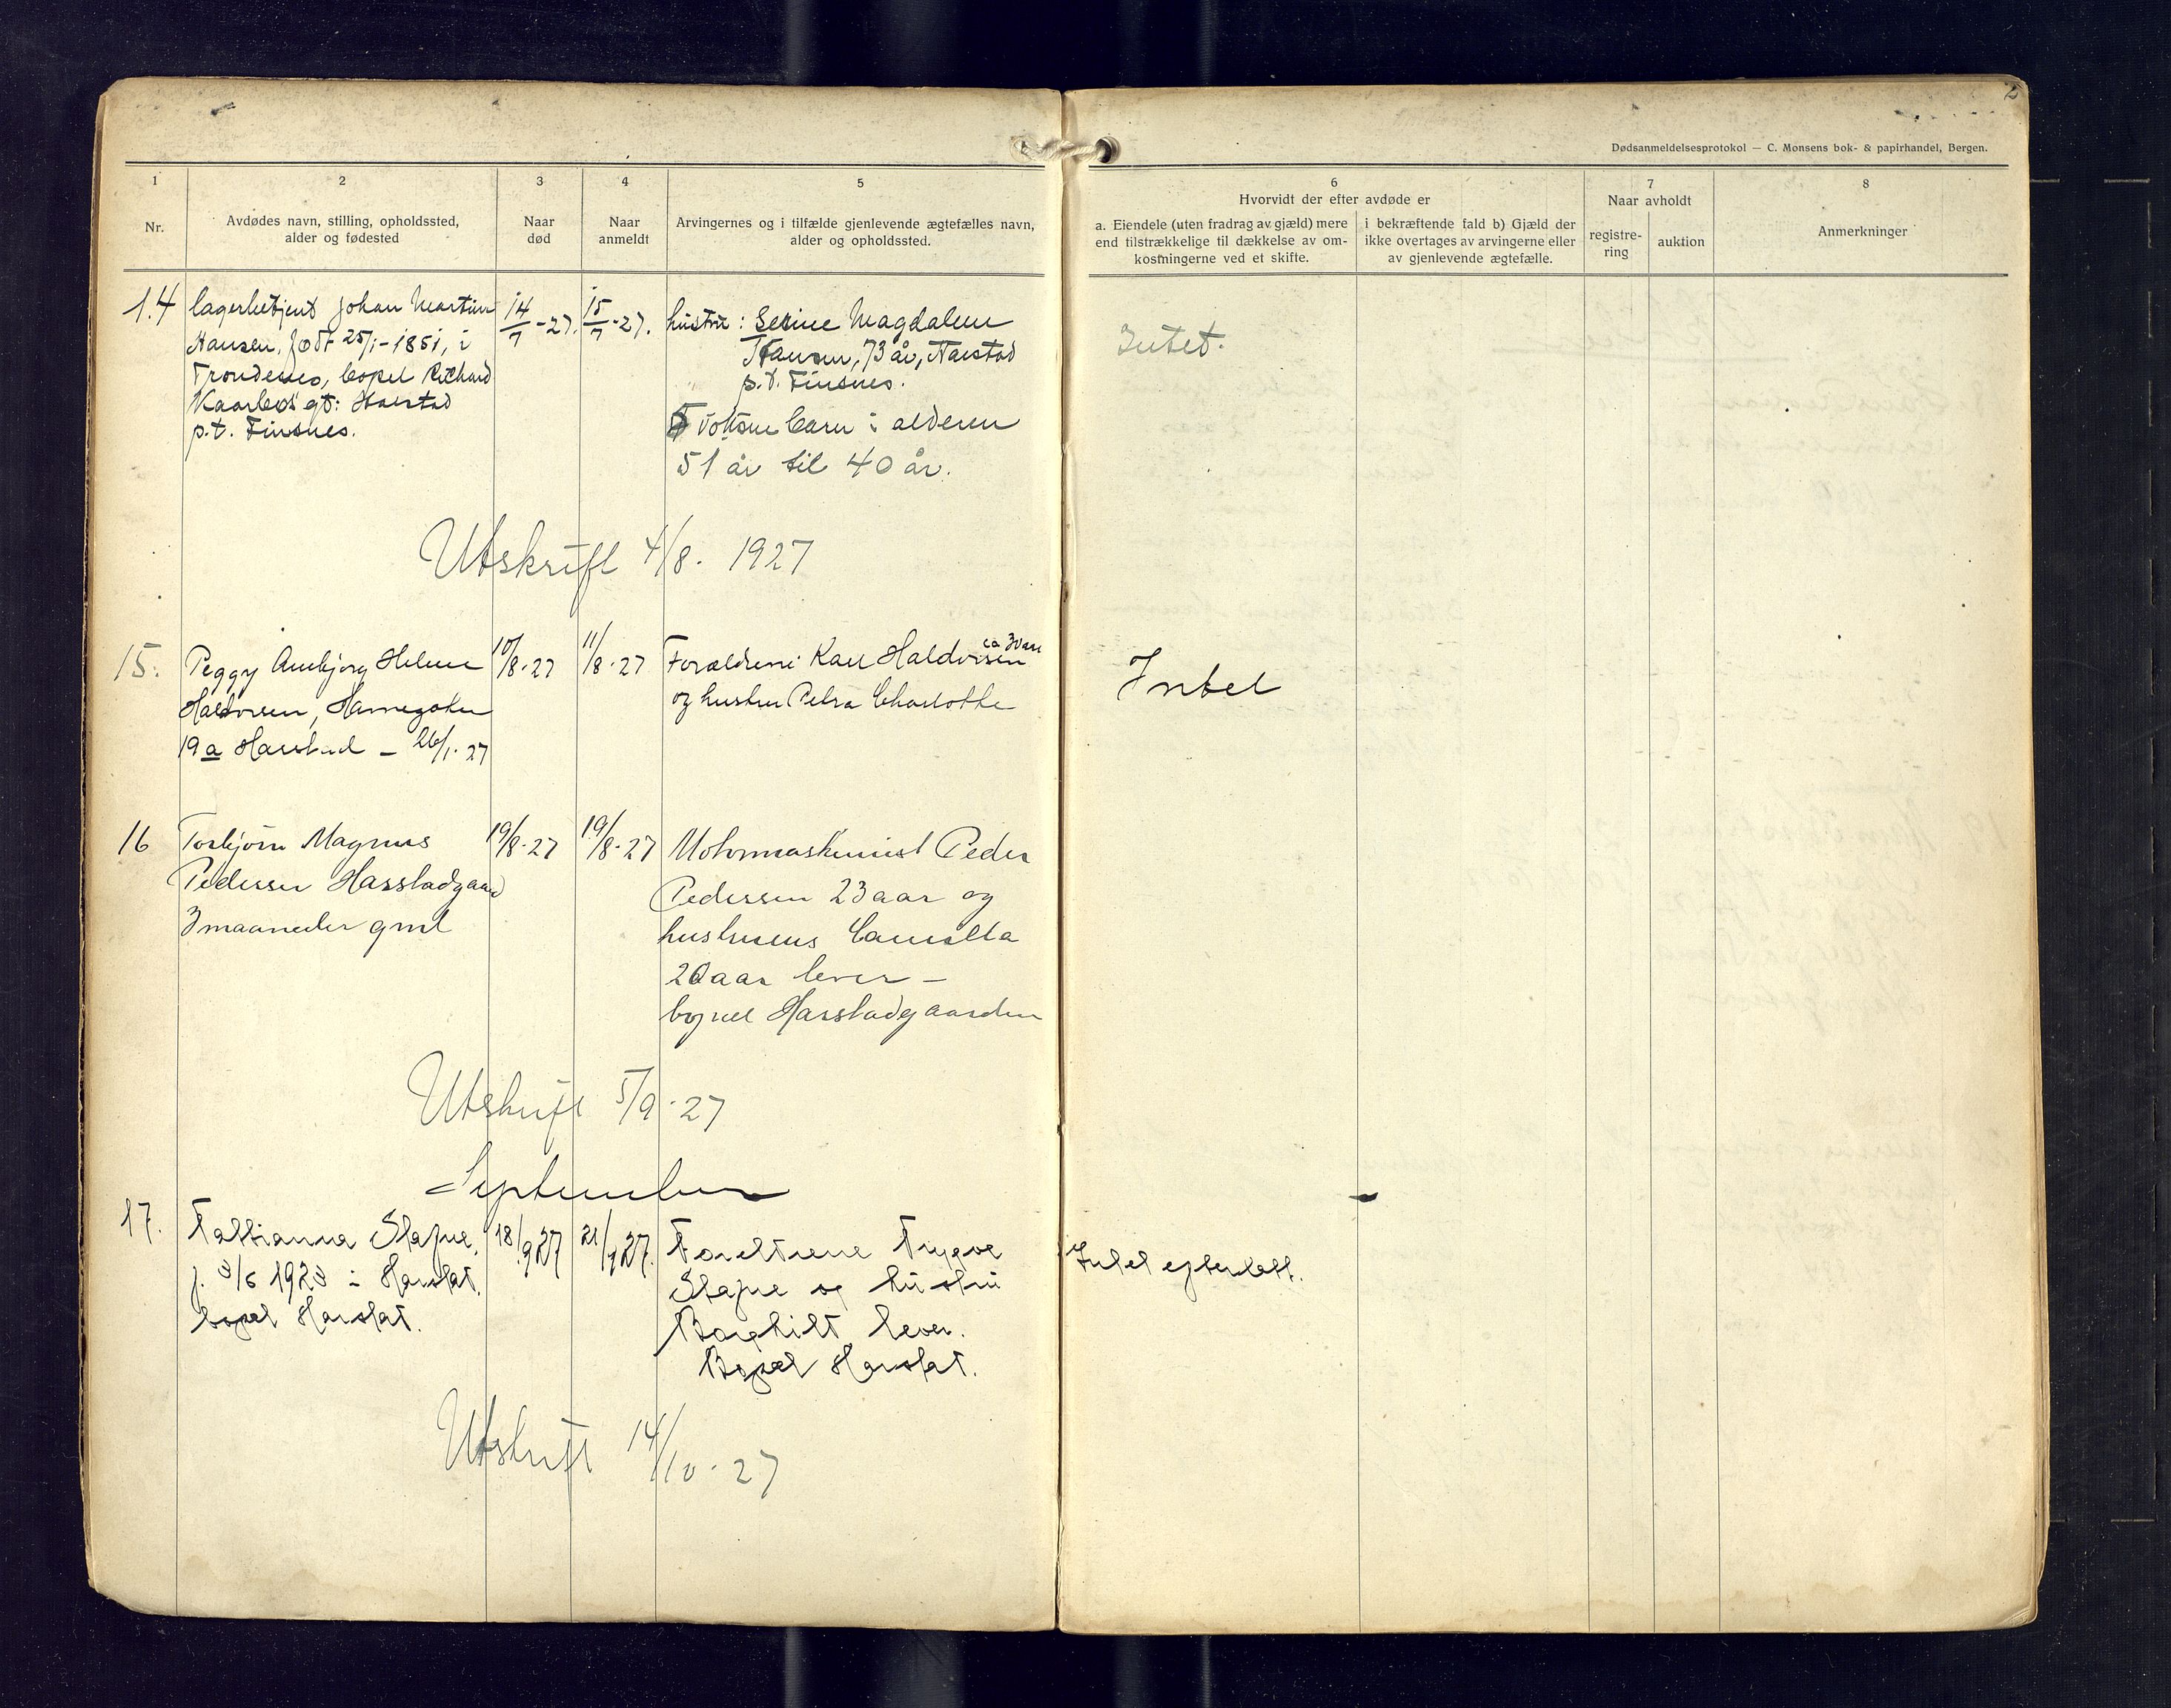 2
Dødsanmeldelsesprotokol — C. Monsens bok- & papirhandel, Bergen.
1
Nr.
2
Avdødes navn, stilling, opholdssted,
alder og fødested
3
Naar
død
4
Naar
anmeldt
5
Arvingernes og i tilfælde gjenlevende ægtefælles navn,
alder og opholdssted.
6
Hvorvidt der efter avdøde er
a. Eiendele (uten fradrag av gjæld) mere
end tilstrækkelige til dækkelse av om-
kostningerne ved et skifte.
i bekræftende fald b) Gjæld der
ikke overtages av arvingerne eller
av gjenlevende ægtefælle.
7
Naar avholdt
registre-
ring
auktion
8
Anmerkninger
14
lagerbetjent Johan Martin
Hansen, født 25/1-1851, i
Trondenes, bopel Richard
Kaarbøs gt: Harstad
p.t. Finsnes.
14/7-27.
15/7-27.
hustru: Serine Magdalene
Hansen, 73 år, Harstad
p.t. Finsnes.
5 voksne barn i alderen
51 år til 40 år.
Intet.
Utskrift 4/8. 1927
15.
Peggy Annbjørg Helene
Haldorsen, Havnegaten
19a Harstad - 26/1. 27
10/8-27
11/8-27
Forældrene Karl Haldorsen ca 30 aar
og hustru Petra Charlotte
Intet
16
Torbjørn Magnus
Pedersen Harstadgaard
3 maaneder gml
19/8-27
19/8-27
Motormaskinist Peder
Pedersen 23 aar og
hustruens
20 aar lever -
bopæl Harstadgaarden
Utskrift 5/9-27
September
17.
Slapue,
f. 3/6 1923 i Harstat.
bopæl Harstat.
18/9 27
21/9 27.
Foreltrene Trygve
Slapue og hustru
Borghilt lever.
Bopæl Harstat.
Intet efterlatt.
Utskrift 14/10-27